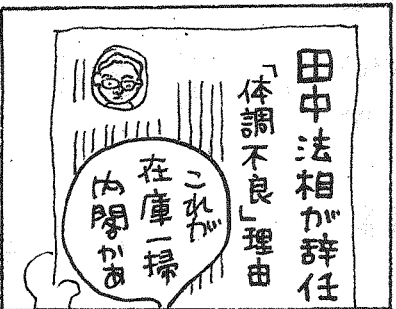 田中法相が辞任
「体調不良」理由
これが
在庫一掃
内閣かあ